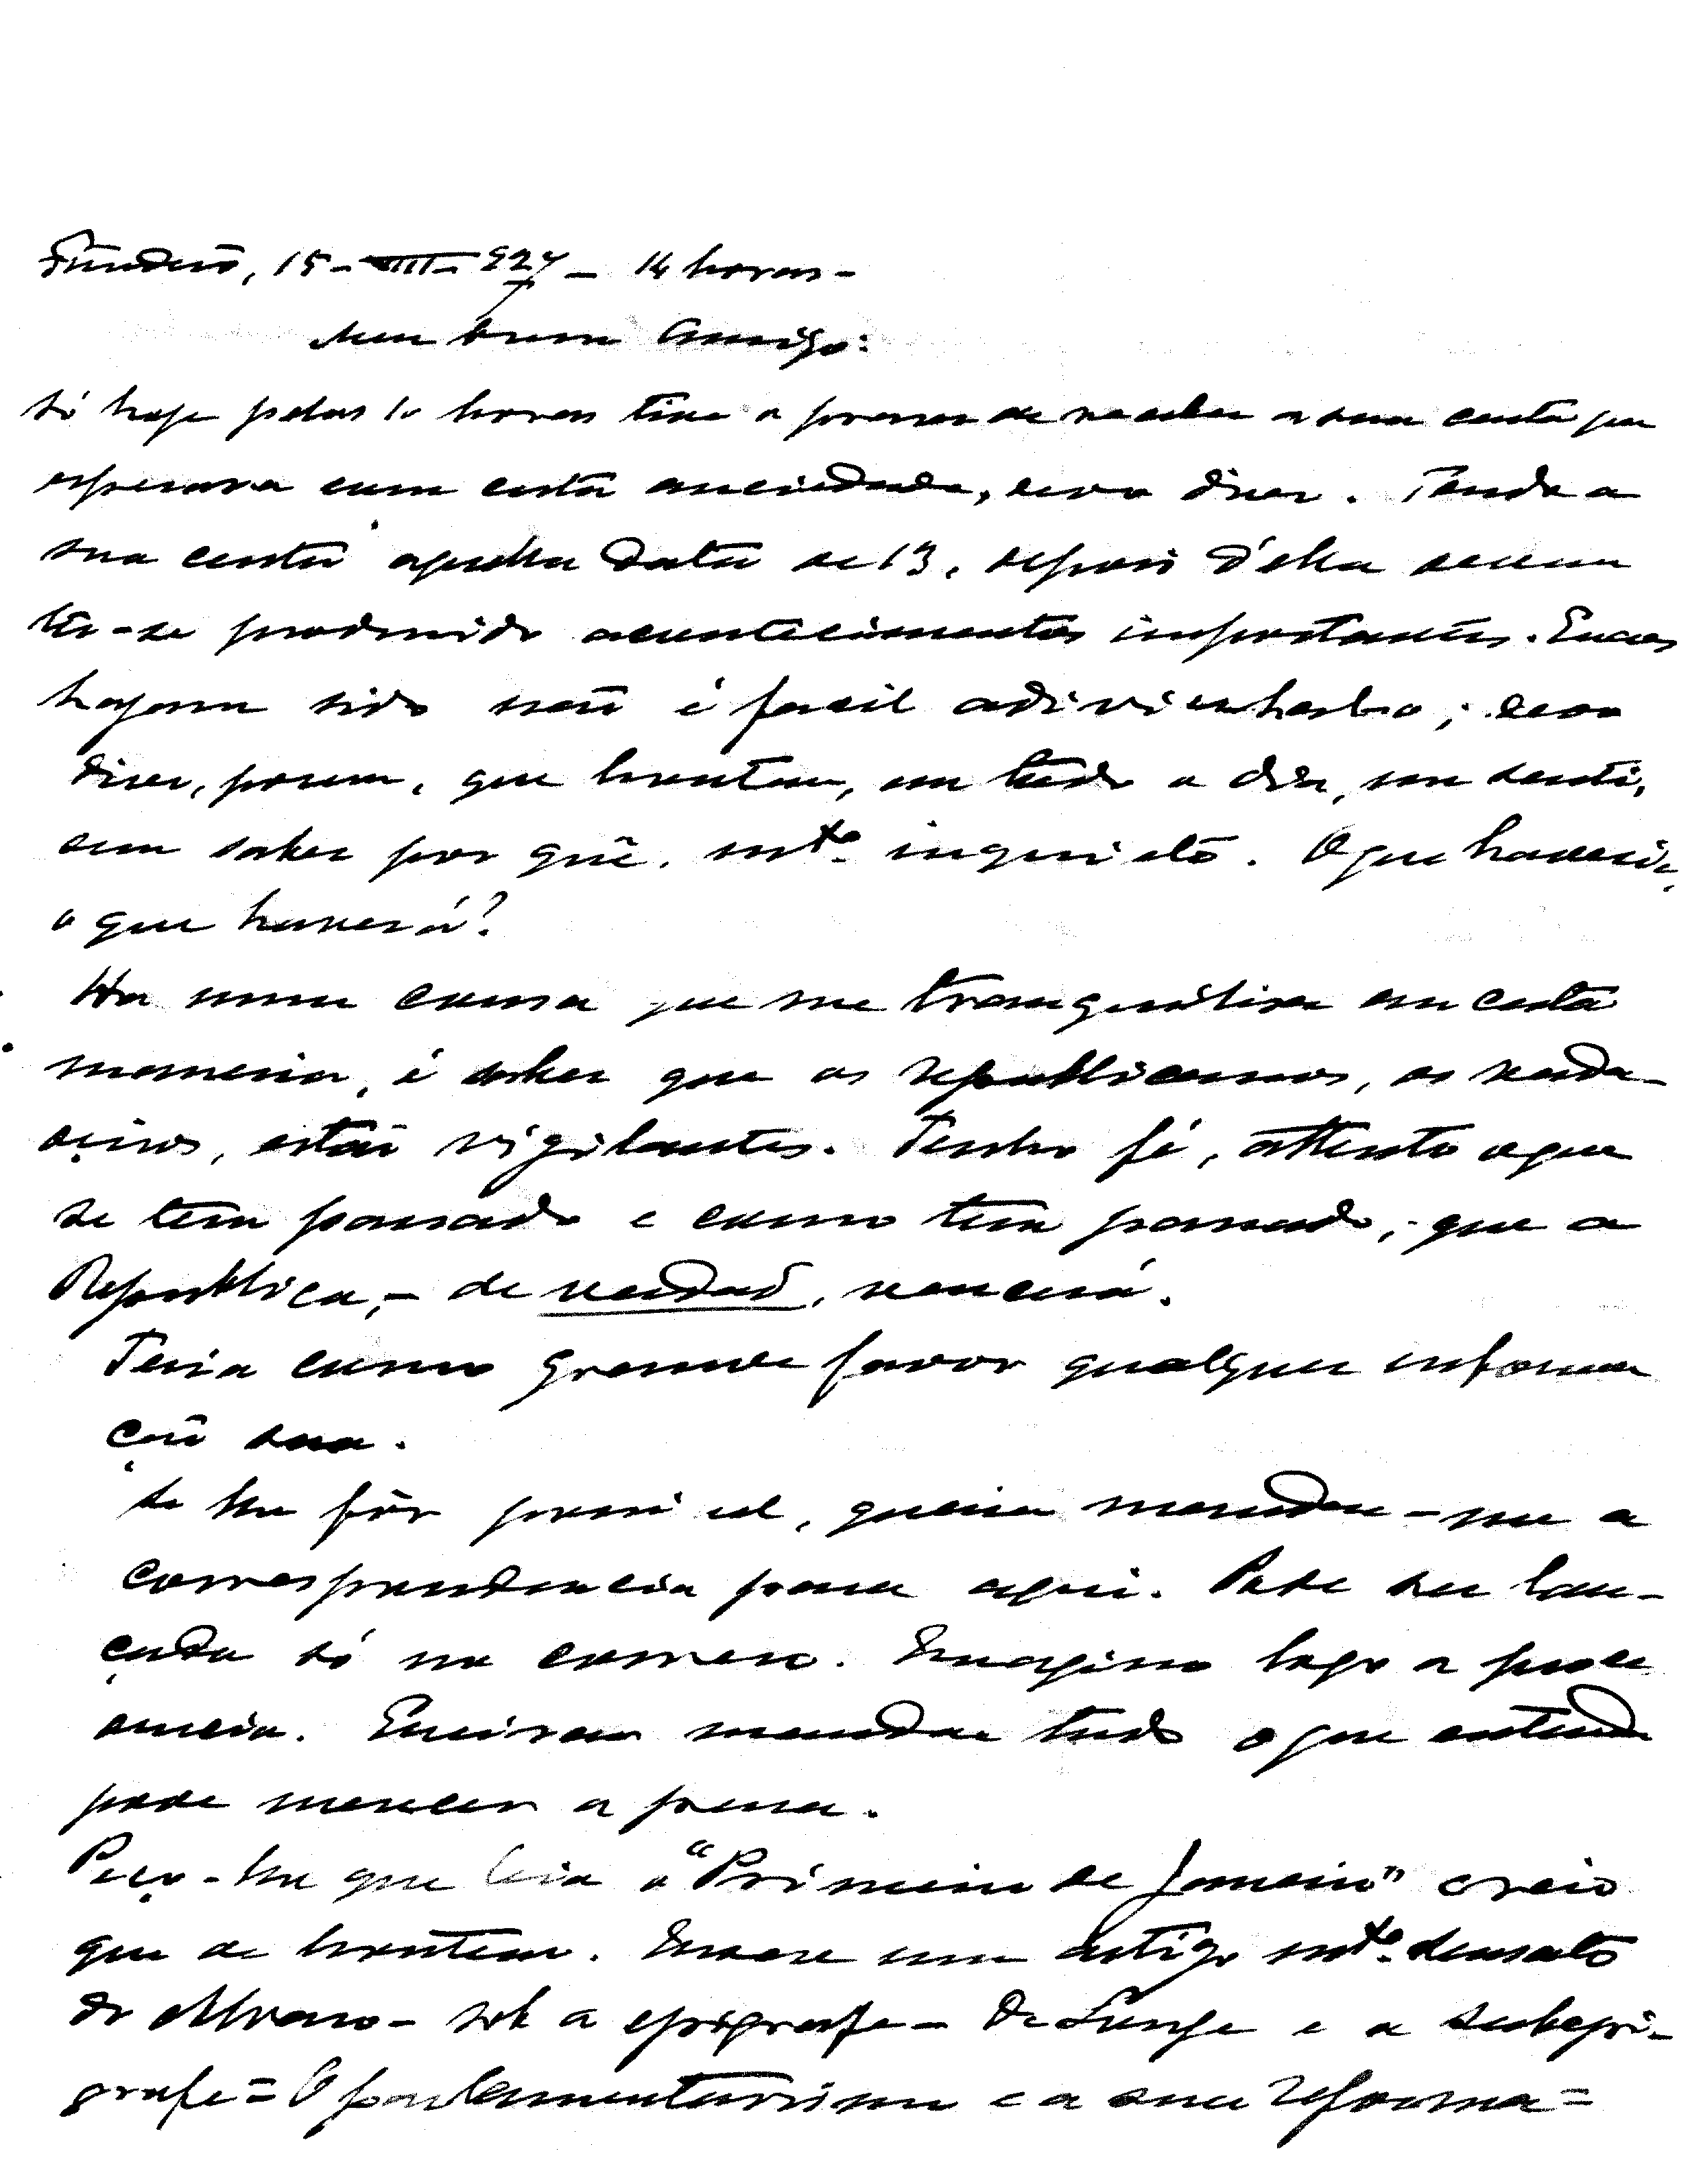 Fundão, 15-VIII-927 - 14 horas -
Meu bom Amigo:
Só hoje pelas 10 horas tive o prazer de receber a sua carta que
esperava com certa anciedade, devo dizer. Tendo a
sua carta aquella data de 13, depois d'ella devem
ter-se produzido acontecimentos importantes. Quaes
hajam sido não é facil adivinhal-o; devo
dizer, porem, que hontem, em todo o dia, me senti,
sem saber por quê, mto. inquieto. O que haveria,
o que haverá?
Ha uma cousa que me tranquilisa em certa
maneira, é saber que os republicanos, os verda-
deiros, estão vigilantes. Tenho fé, attento o que
se tem passado e como tem passado, que a
Republica, - de verdad, vencerá.
Teria como grande favor qualquer informa
ção sua.
Se lhe fôr possivel, queira mandar-me a
correspondencia para aqui. Pode ser lan-
çada só no correio. Imagino logo a proce
dencia. Queiram mandar tudo o que entenda
pode merecer a pena.
Peço-lhe que leia o "Primeiro de Janeiro" creio
que de hontem. Trase um artigo mto. sensato
do Alvaro - sob a epigrafe - De Longe e a subepi-
grafe = O parlamentarismo e a sua reforma =